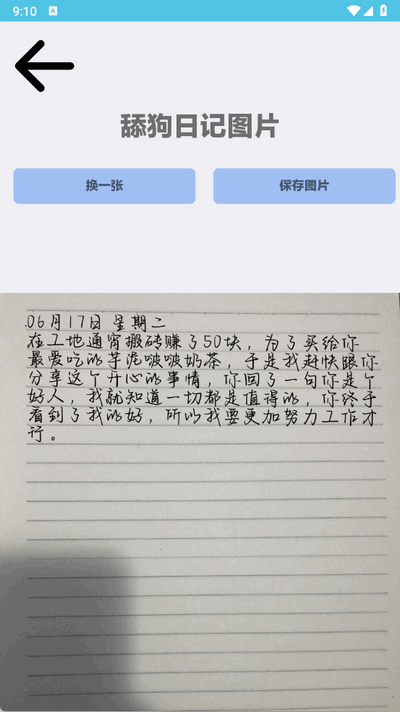 9:10 A
舔狗日记图片
换一张 保存图片
06月17日星期二
在工地通宵搬砖赚了50块，为了买给你
最爱吃的芋泥啵啵奶茶，于是我赶快跟你
分享这个开心的事情，你回了一句你是个
好人，我就知道一切都是值得的，你终于
看到了我的好，所以我要更加努力工作才
行。